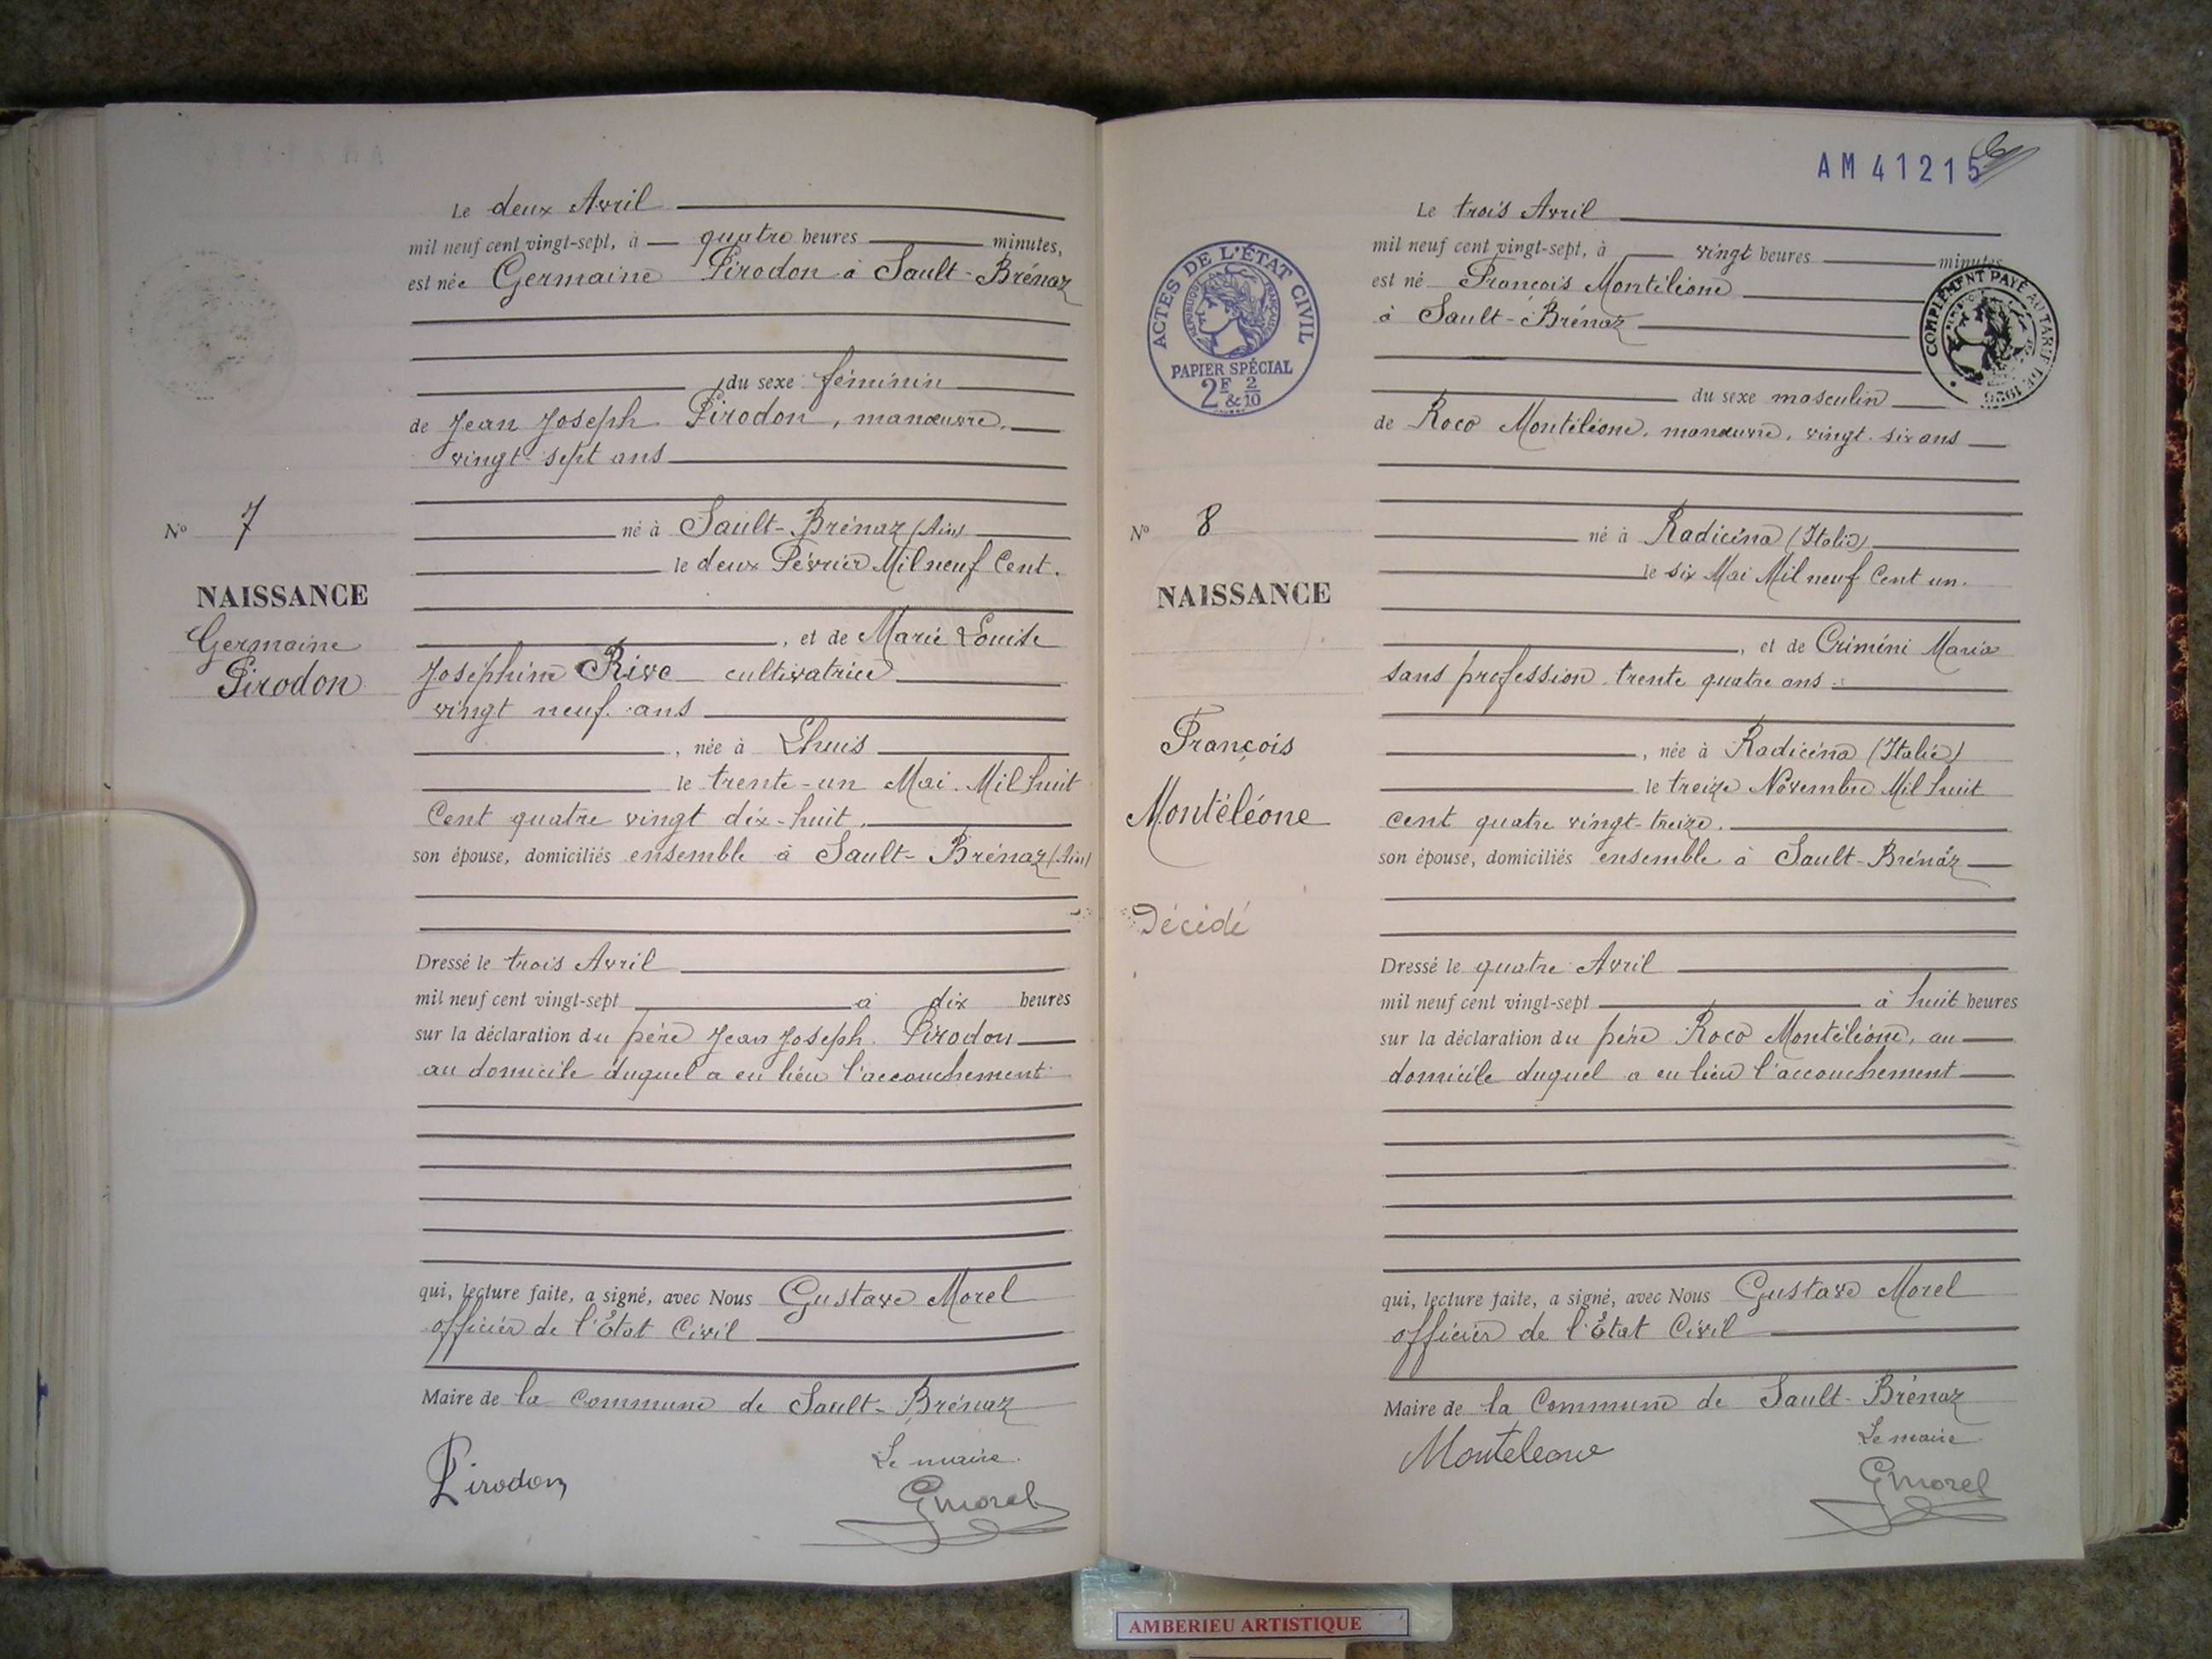 Le deux Avril
mil neuf cent vingt-sept, à quatre heures minutes,
est née Germaine Pirodon à Sault-Brénaz
du sexe féminin
de Jean Joseph Pirodon, manœuvre,
vingt-sept ans
né à Sault-Brénaz (Ain)
le deux Février Mil neuf Cent.
Nº 7
NAISSANCE
Germaine
Pirodon
, et de Marie Louise
Joséphine Rive cultivatrice
vingt neuf ans
, née à Lhuis
le trente-un Mai Mil huit
Cent quatre vingt dix-huit,
son épouse, domiciliés ensemble à Sault-Brénaz (Ain)
Dressé le trois Avril
mil neuf cent vingt-sept à dix heures
sur la déclaration du père Jean Joseph Pirodon
au domicile duquel a eu lieu l'accouchement
qui, lecture faite, a signé, avec Nous Gustave Morel
officier de l'État Civil
Maire de la Commune de Sault-Brénaz
Le maire
Pirodon
GMorel
AM 41215
Le trois Avril
mil neuf cent vingt-sept, à vingt heures minutes
est né François Montéléone
à Sault-Brénaz
ACTES DE L'ÉTAT CIVIL
RÉPUBLIQUE FRANÇAISE
PAPIER SPÉCIAL
2F & 2/10
COMPLÉMENT PAYÉ AU TARIF DE 1926
du sexe masculin
de Roco Montéléone, manœuvre, vingt-six ans
né à Radicina (Italie)
le six Mai Mil neuf Cent un.
Nº 8
NAISSANCE
François
Montéléone
Décédé
, et de Crimeni Maria
sans profession trente quatre ans
, née à Radicina (Italie)
le treize Novembre Mil huit
cent quatre vingt-treize.
son épouse, domiciliés ensemble à Sault-Brénaz
Dressé le quatre Avril
mil neuf cent vingt-sept à huit heures
sur la déclaration du père Roco Montéléone, au
domicile duquel a eu lieu l'accouchement
qui, lecture faite, a signé, avec Nous Gustave Morel
officier de l'État Civil
Maire de la Commune de Sault-Brénaz
Le maire
Monteleone
GMorel
AMBERIEU ARTISTIQUE